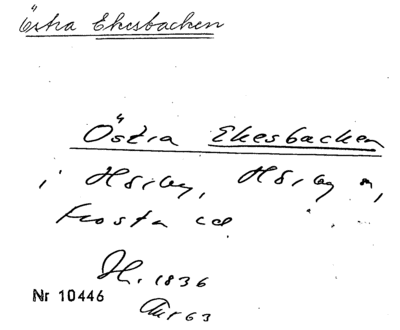 Östra Ekesbacken
Östra Ekesbacken
i Hörby, Hörby sn,
Frosta hd
H. 1836
Nr 10446
63